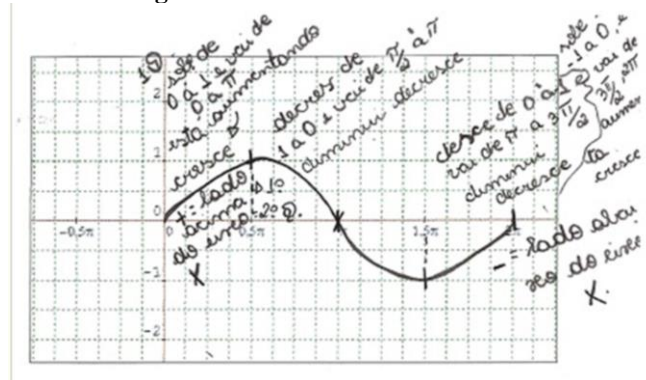 1Q
sobe de
0 à 1 e vai de
0 à π
está aumentando
cresce
decres de
1 a 0 e vai de π/2 à π
diminui decresce
desce de 0 à -1 e
vai de π a 3π/2
diminui
decresce
sobe
-1 a 0, e
vai de
3π/2, 2π
aumen
ta
cresce
+ = lado
acima
do eixo
X
1º
2º Q.
- = lado abai
xo do eixo
X.
2
1
0
-1
-2
-0,5π
0
0,5π
1,5π